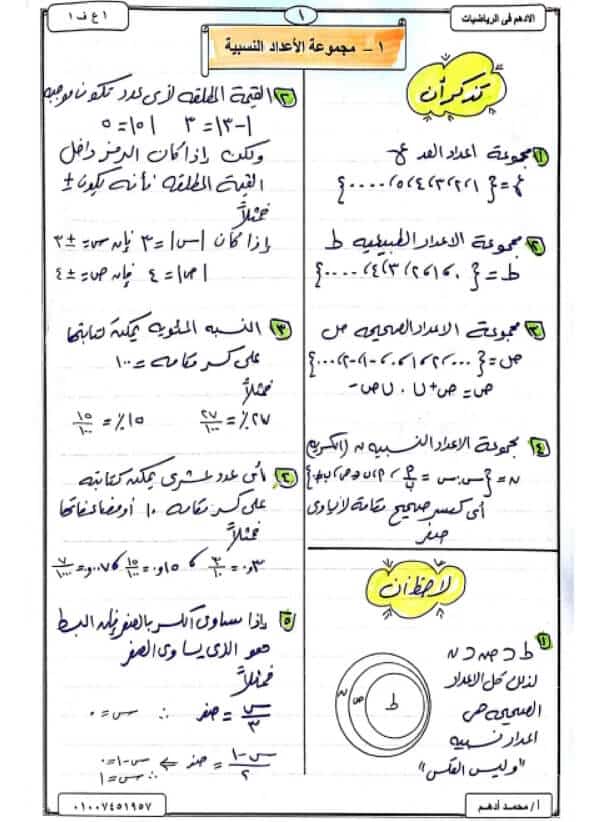 الادهم فى الرياضيات
١
١ ع ف ١
١ - مجموعة الأعداد النسبية
تذكر أن
١ مجموعة اعداد العد ع
ع = { ١ ، ٢ ، ٣ ، ٤ ، ٥ ، .... }
٢ مجموعة الاعداد الطبيعيه ط
ط = { ٠ ، ١ ، ٢ ، ٣ ، ٤ ، .... }
٣ مجموعة الاعداد الصحيحه ص
ص = { ... ، ٢ ، ١ ، ٠ ، -١ ، -٢ ، ... }
ص = ص+ ∪ ٠ ∪ ص-
٤ مجموعة الاعداد النسبيه ن
أى كسر صحيح مقامة لا يساوى
صفر
لاحظ أن
١ ط ⊂ ص ⊂ ن
لذلك كل الاعداد
الصحيحه هى
اعداد نسبيه
"وليس العكس"
ن ص ط
٢ القيمة المطلقه لأى عدد تكون موجبه
|-٣| = ٣ |٥| = ٥
ولكن إذا كان الرمز داخل
القيمة المطلقه فأنه يكون ±
فمثلاً
إذا كان |س| = ٣ فإن س = ± ٣
|ص| = ٤ فإن ص = ± ٤
٣ النسبه المئويه يمكن كتابتها
على كسر مقامه = ١٠٠
فمثلاً
٢٧٪ = ٢٧/١٠٠ ١٥٪ = ١٥/١٠٠
أى عدد عشرى يمكن كتابته
على كسر مقامه ١٠ أو مضاعفاتها
فمثلاً
٠٫٣ = ٣/١٠ ، ٠٫١٥ = ١٥/١٠٠ ، ٠٫٠٠٧ = ٧/١٠٠٠
٥ إذا تساوى الكسر بالصفر فإن البسط
هو الذى يساوى الصفر
فمثلاً
س/٣ = صفر ∴ س = ٠
س-١/٢ = صفر ⇐ س-١ = ٠
∴ س = ١
أ / محمد أدهم
٠١٠٠٧٤٥١٩٥٧